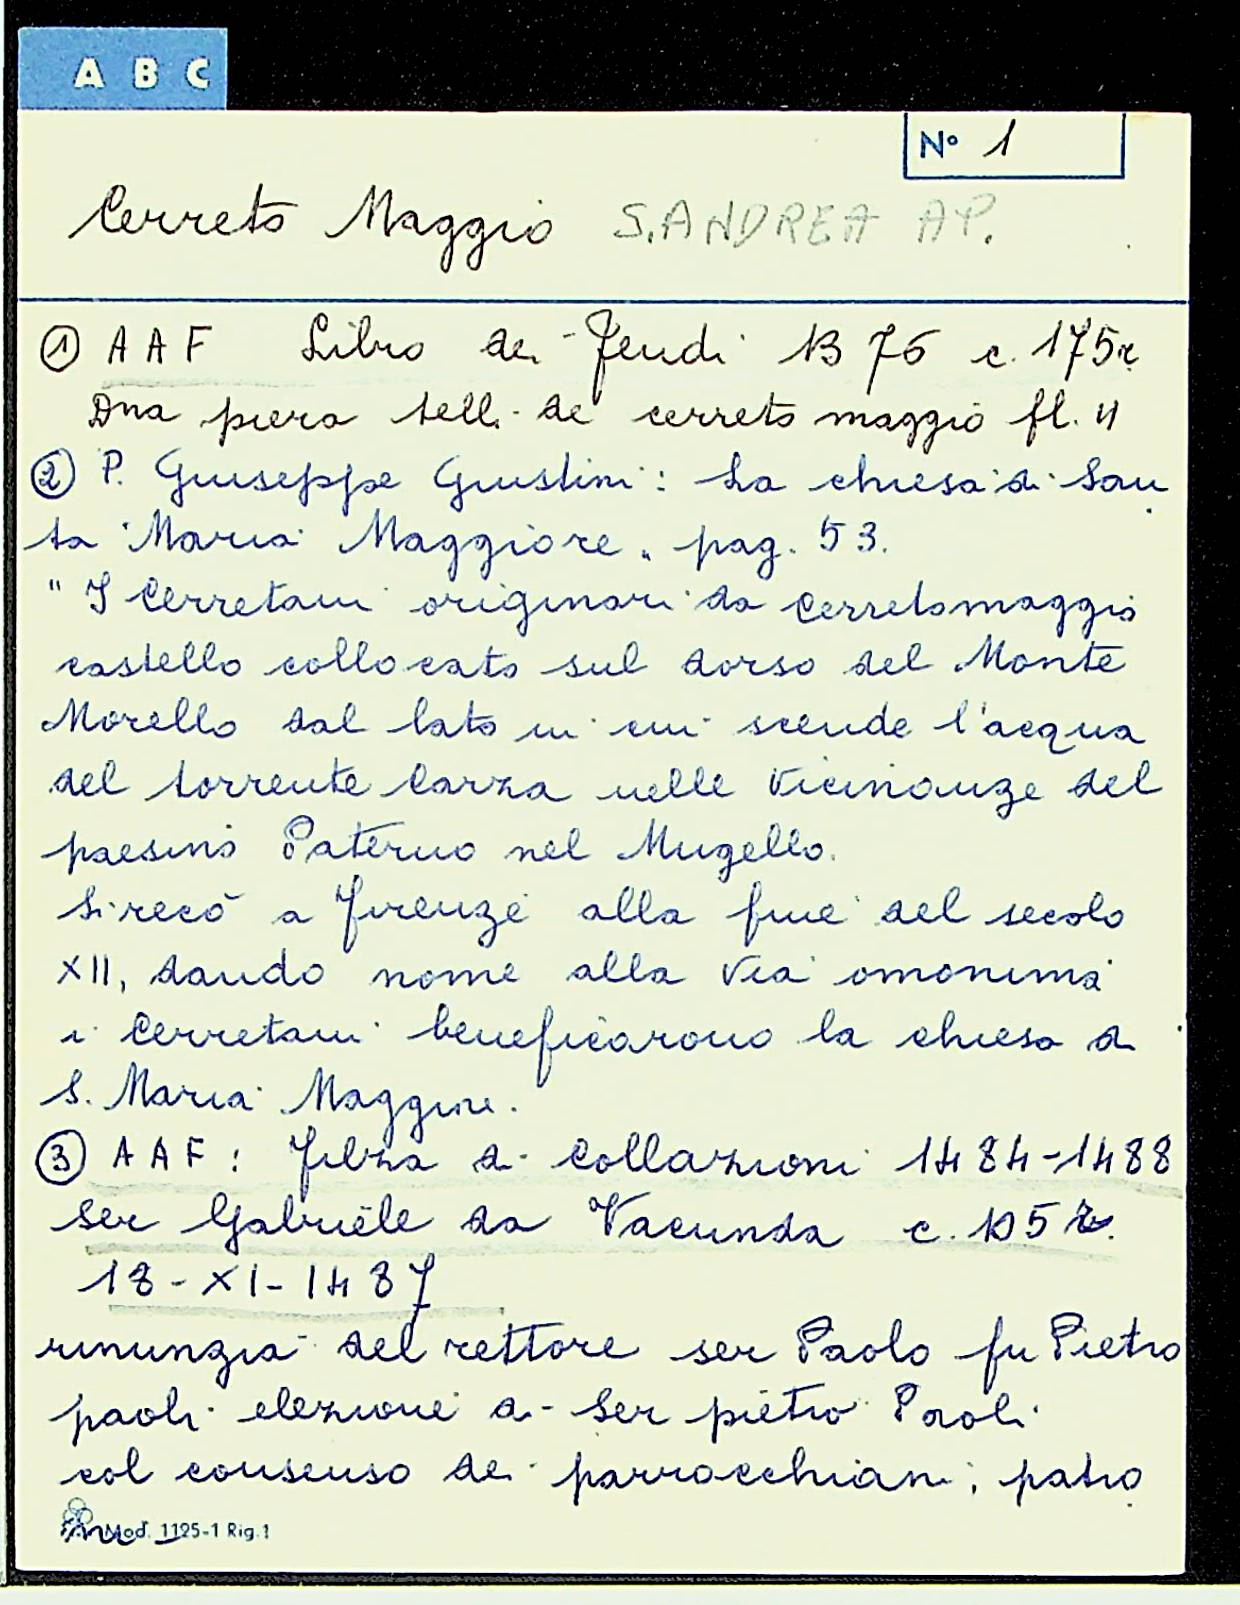 A B C
Nº 1
Cerreto Maggio S. ANDREA AP.
① AAF Libro dei Feudi B 76 c. 175r
Dna piera tell. de cerreto maggio fl. 4
② P. Giuseppe Giustini: La chiesa di San
ta Maria Maggiore, pag. 53.
" I Cerretani originari da Cerretomaggio
castello collocato sul dorso del Monte
Morello dal lato in cui scende l'acqua
del torrente Carza nelle vicinanze del
paesino Paterno nel Mugello.
Si recò a Firenze alla fine del secolo
XII, dando nome alla via omonima
i Cerretani beneficarono la chiesa di
S. Maria Maggiore.
③ AAF: Filza di Collazioni 1484-1488
ser Gabriele da Vacunda c. 105 r.
18-XI-1487
rinunzia del rettore ser Paolo fu Pietro
paoli elezione di Ser pietro Paoli
col consenso dei parrocchiani, patro
Mod. 1125-1 Rig. 1